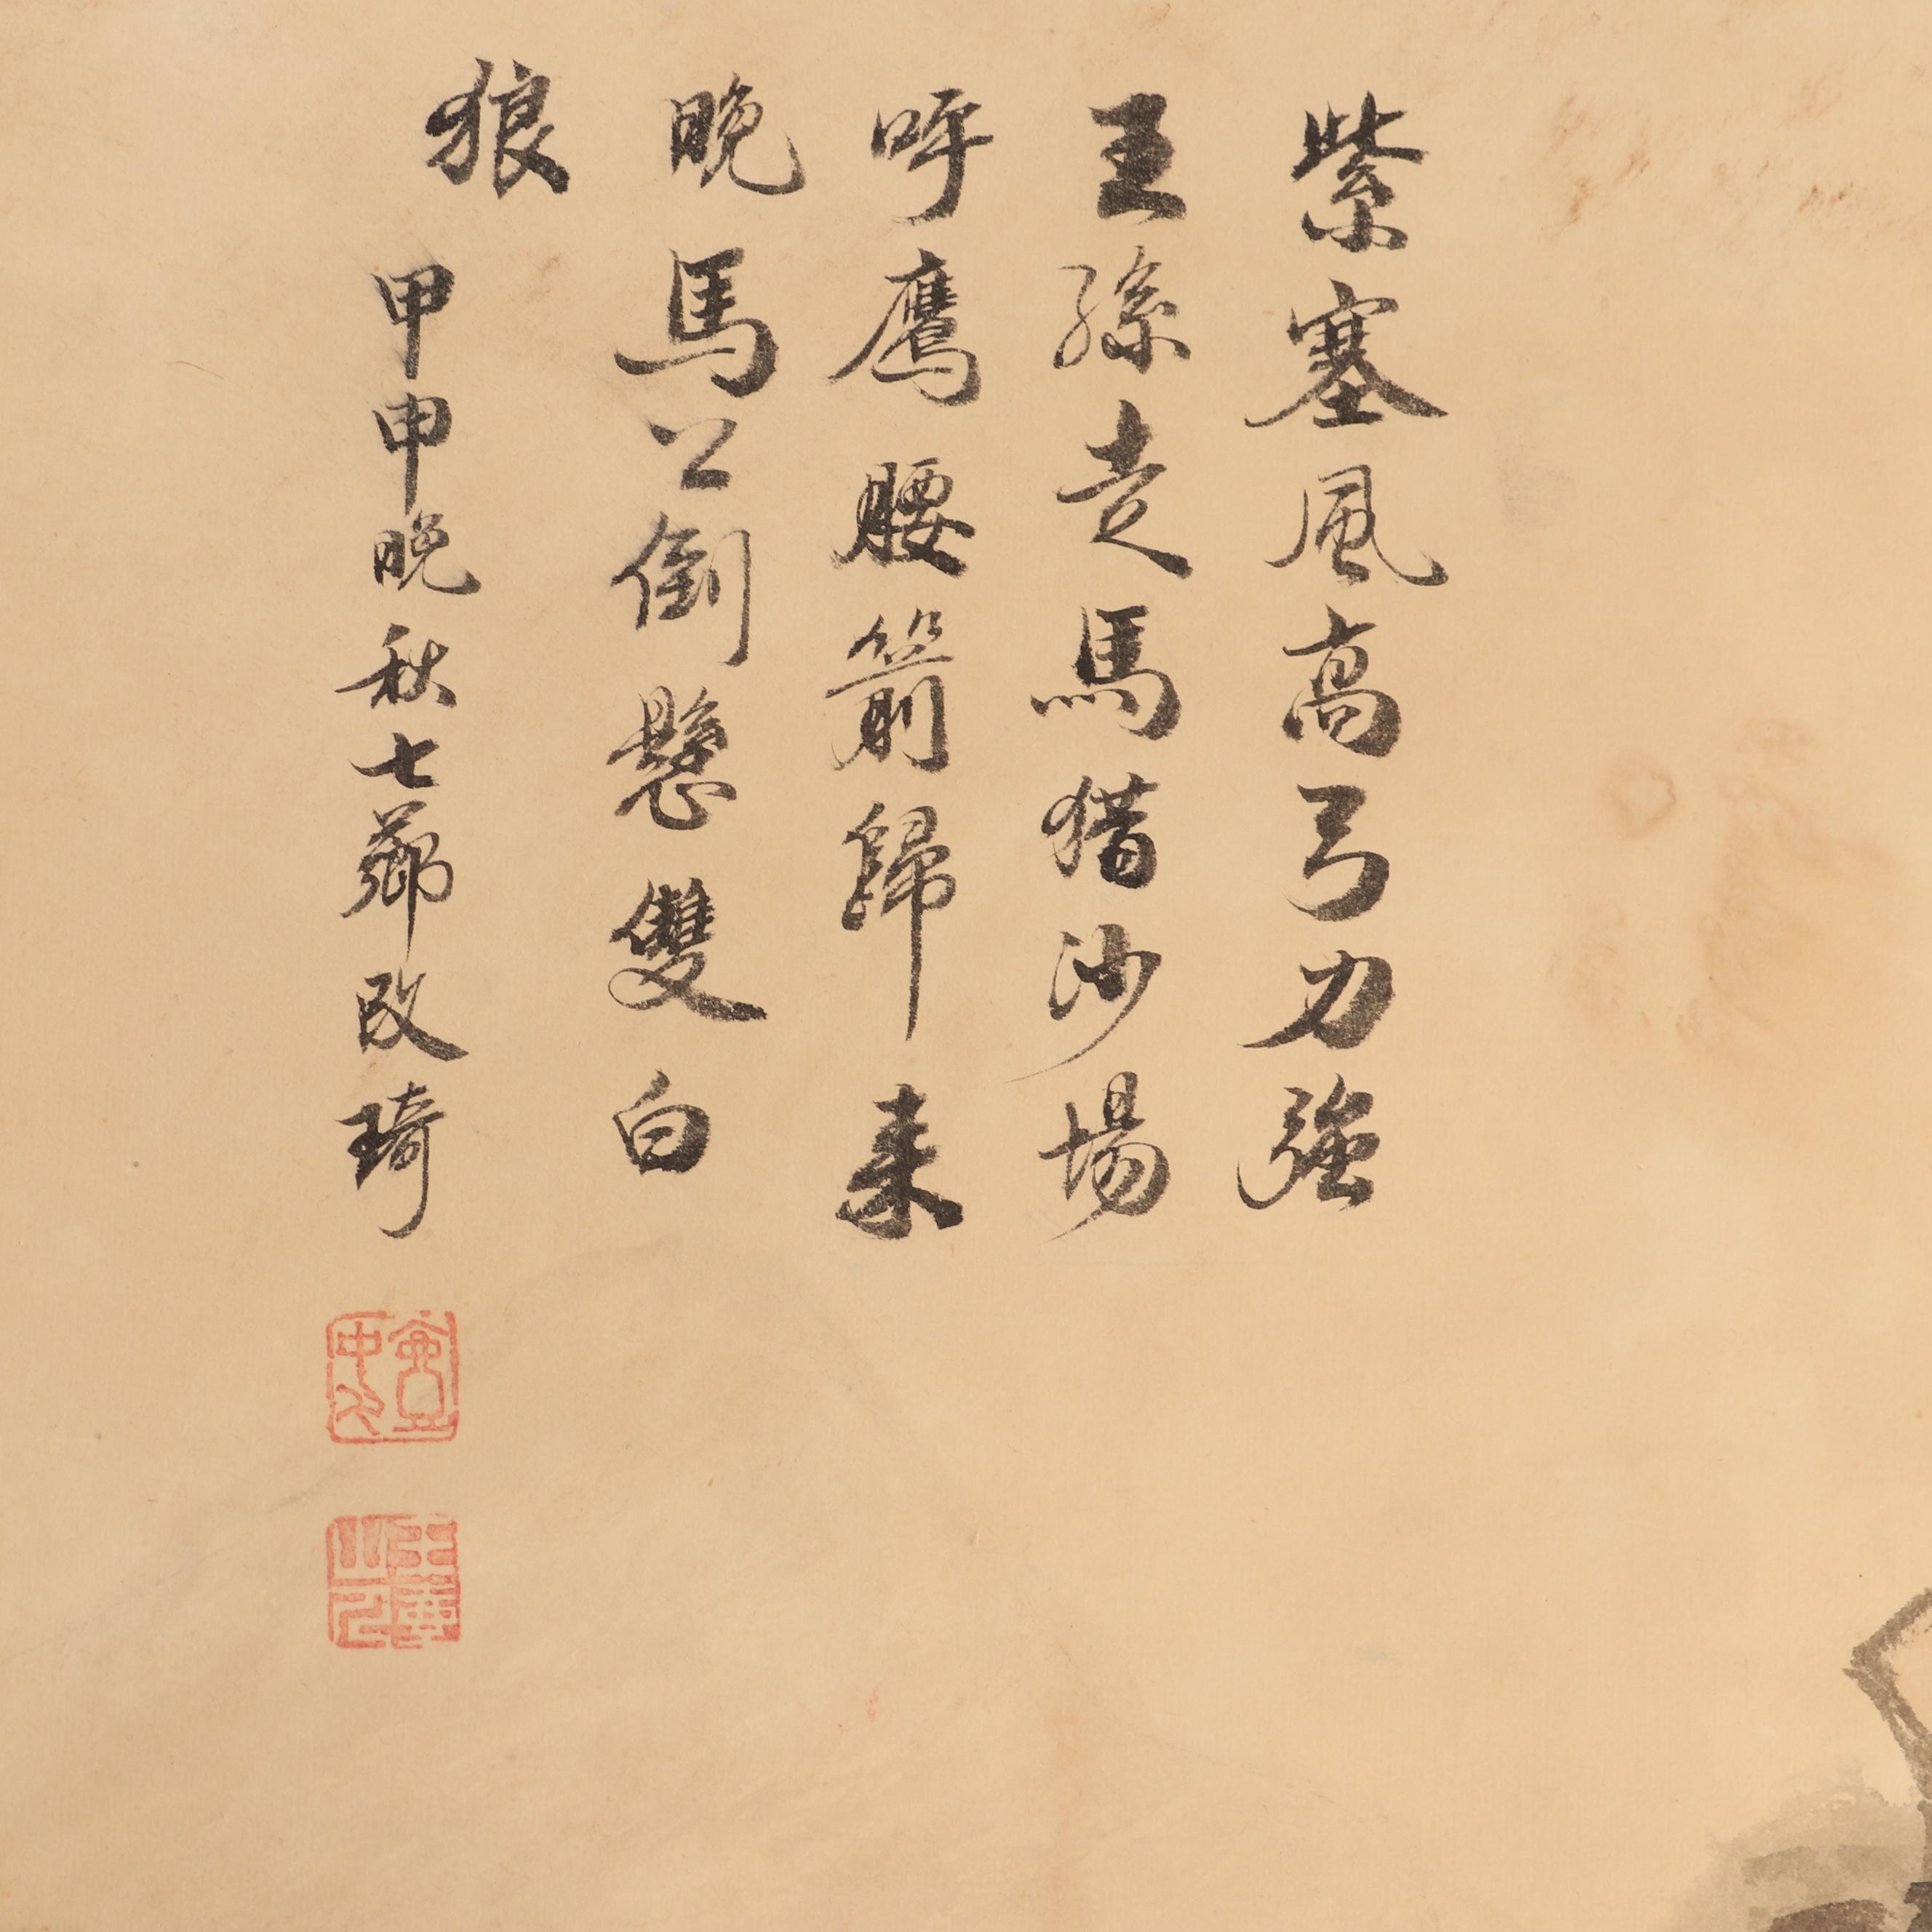 紫塞風高弓力強
王孫走馬猎沙場
呼鷹腰箭歸来
晚馬上倒懸雙白
狼
甲申晚秋七薌改琦